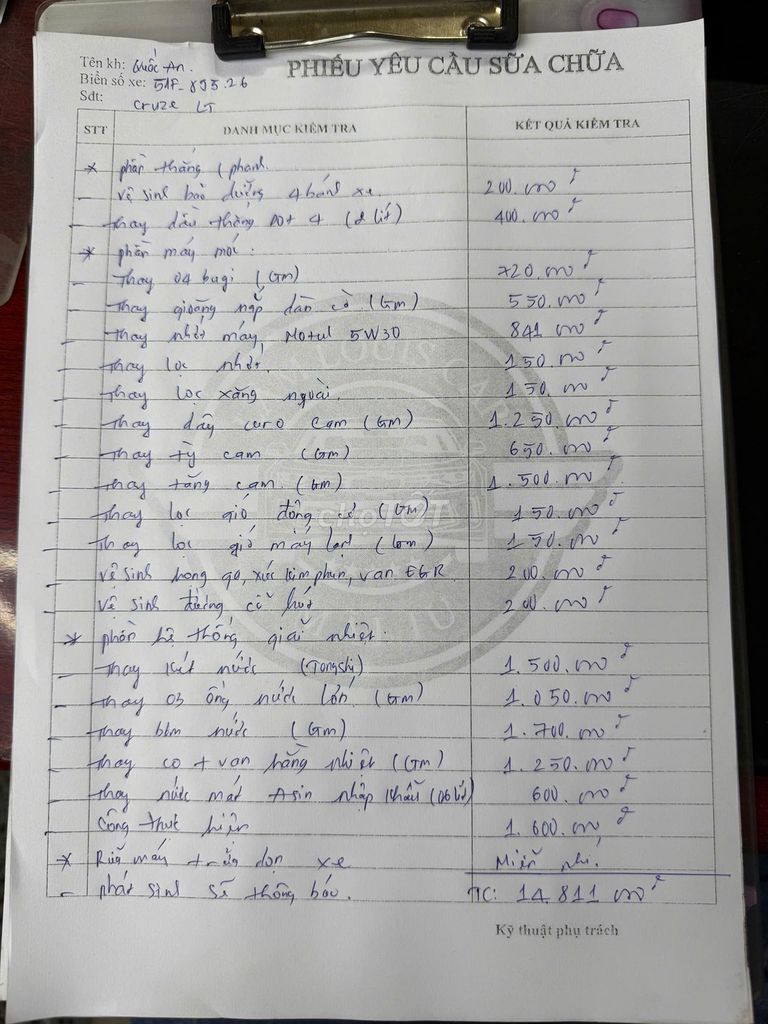 PHIẾU YÊU CẦU SỬA CHỮA
Tên kh: Quốc An.
Biển số xe: 51F-895.26
Sđt:
Cruze LT
STT DANH MỤC KIỂM TRA KẾT QUẢ KIỂM TRA
* phần thắng (phanh.
- vệ sinh bảo dưỡng 4 bánh xe. 200.000đ
- thay dầu thắng Dot 4 (2 lít) 400.000đ
* phần máy móc:
- thay 04 bugi (Gm) 720.000đ
- thay gioăng nắp dàn cò (Gm) 550.000đ
- thay nhớt máy Motul 5W30 841.000đ
- thay lọc nhớt. 150.000đ
- thay lọc xăng ngoài. 150.000đ
- thay dây curo cam (Gm) 1.250.000đ
- thay tỳ cam (Gm) 650.000đ
- thay tăng cam. (Gm) 1.500.000đ
- thay lọc gió động cơ (Gm) 150.000đ
- thay lọc gió máy lạnh (Gm) 150.000đ
- vệ sinh họng ga, xúc kim phun, van EGR 200.000đ
- vệ sinh đường cổ hút 200.000đ
* phần hệ thống giải nhiệt.
- thay két nước (Tongshi) 1.500.000đ
- thay 03 ống nước lớn. (Gm) 1.050.000đ
- thay bơm nước (Gm) 1.700.000đ
- thay co + van hằng nhiệt (Gm) 1.250.000đ
- thay nước mát Asin nhập khẩu (06 lít) 600.000đ
Công thực hiện 1.600.000đ
* Rửa máy xe Miễn phí.
- phát sinh sẽ thông báo. TC: 14.811.000đ
Kỹ thuật phụ trách
CHỢ TỐT